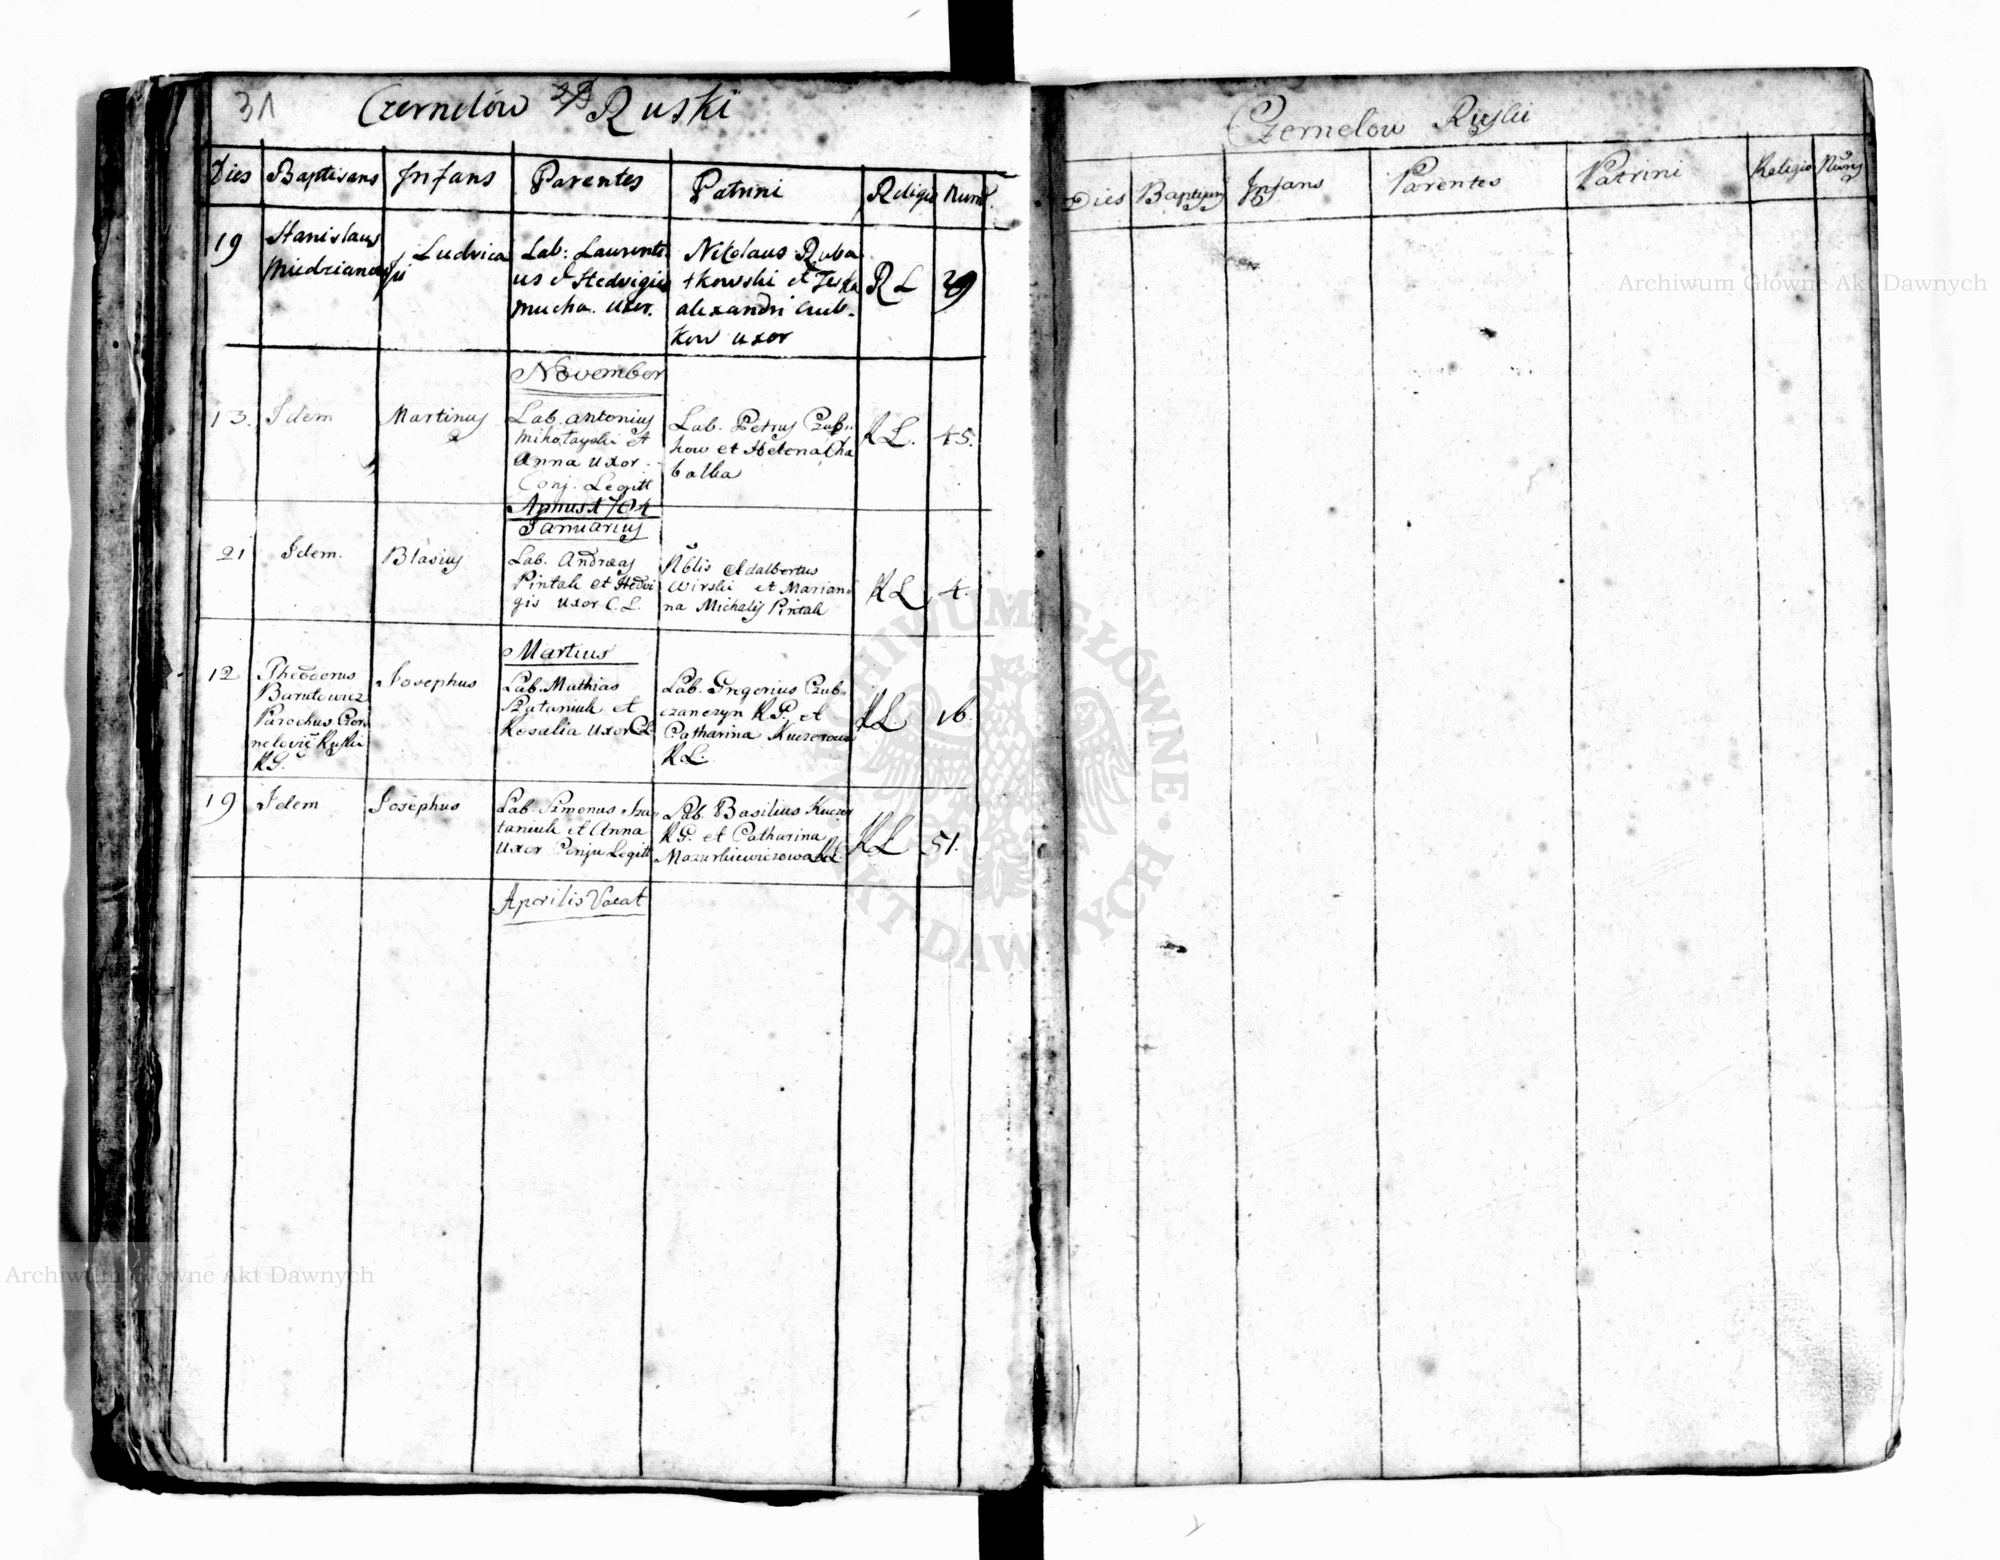 31
Czernelów Ruski
Dies Baptisans Infans Parentes Patrini Religio Num.
19 Stanislaus Ludvica Lab: Laurenti- Nikolaus Ruba
us et Hedvigis tkowski et
Mucha. Uxor. alexandri Czub-
kow uxor
R L 29
November
13. Idem Martinus Lab. Antonius
Mikołayski et
Anna Uxor.
Conj. Legitt
Lab. Petrus Czub-
kow et Helena Cha
balka
RL. 45.
Annus 1784
Januarius
21 Idem. Blasius Lab. Andreas
Pintak et Hedvi
gis Uxor C. L.
Nblis Adalbertus
Wirski et Marian-
na Michalis Pintak
RL 4.
Martius
12 Theodorus
Barutowicz
Parochus Czer
nelovie Ruski
RG.
Josephus
Lab. Mathias
Szataniuk et
Rosalia Uxor CL
Lab. Gregorius Czub-
czanczyn RG. et
Catharina Kuczerowa
RL.
RL 16.
19 Idem Josephus Lab. Simonus Sza-
taniuk et Anna
Uxor Conju Legitt
Lab. Basilius Kuczer
RG. et Catharina
Mazurkiewiczowa RL.
RL 51.
Aprilis Vacat
Czernelow Ruski
Dies Baptisans Infans Parentes Patrini Religio Numus
Archiwum Główne Akt Dawnych
ARCHIWUM GŁÓWNE AKT DAWNYCH
Archiwum Główne Akt Dawnych